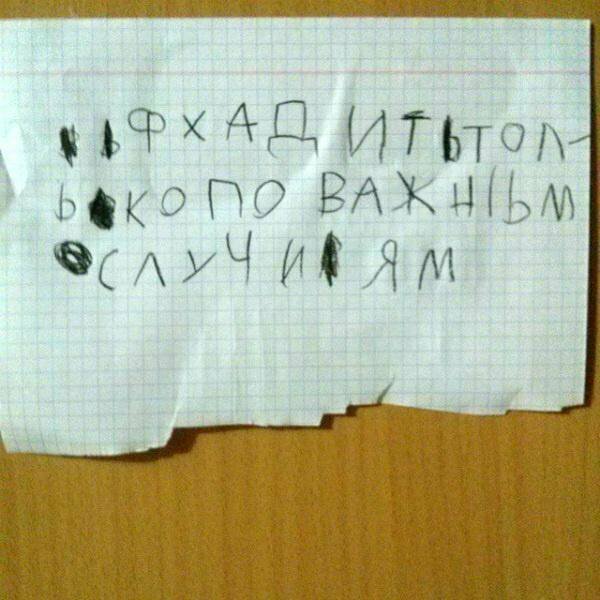 ФХАДИТЬ ТОЛ-
Ь КО ПО ВАЖНІЬМ
СЛУЧИЯМ